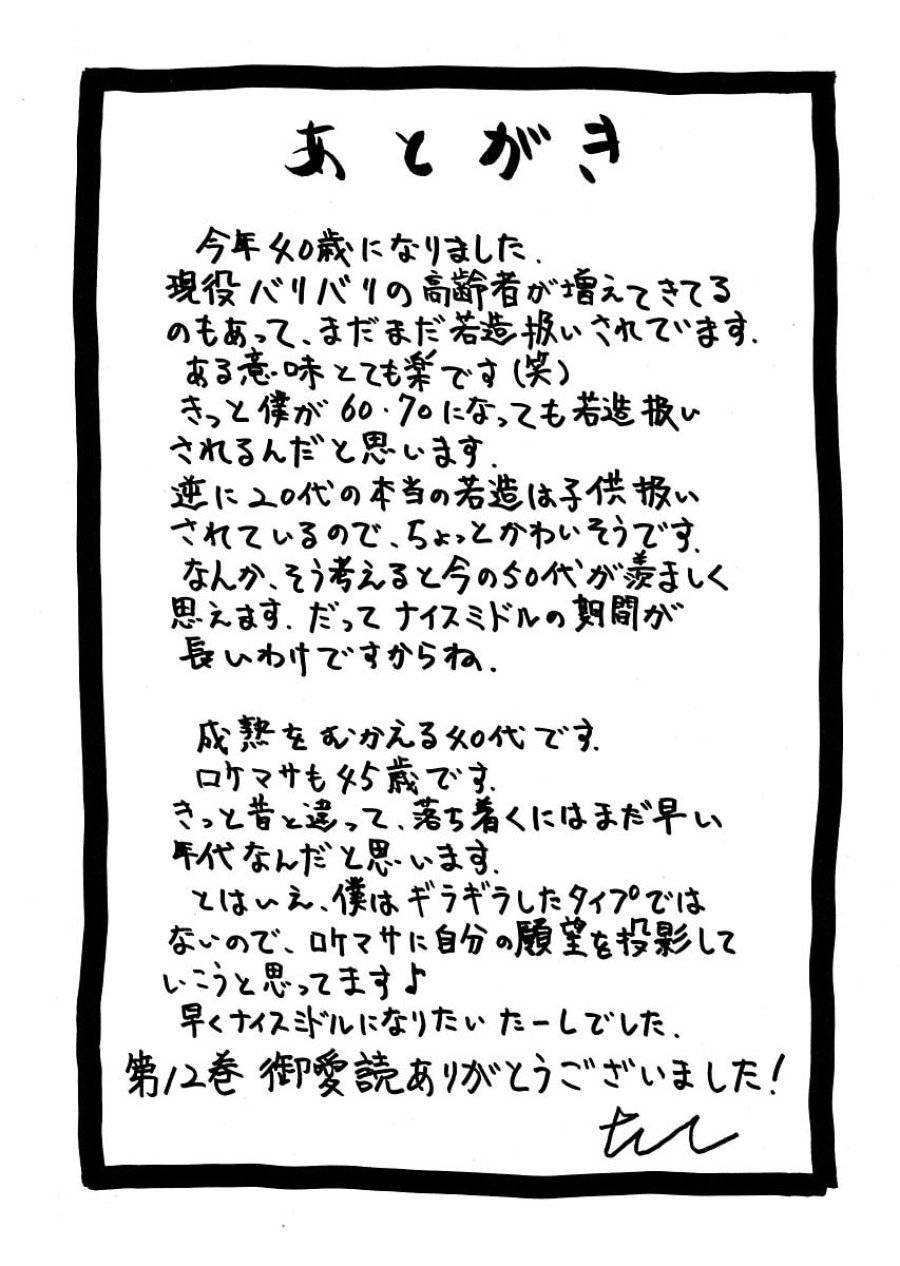 あとがき
今年40歳になりました.
現役バリバリの高齢者が増えてきてる
のもあって、まだまだ若造扱いされています.
ある意味とても楽です(笑)
きっと僕が60・70になっても若造扱い
されるんだと思います.
逆に20代の本当の若造は子供扱い
されているので、ちょっとかわいそうです.
なんか、そう考えると今の50代が羨ましく
思えます. だってナイスミドルの期間が
長いわけですからね.
成熟をむかえる40代です.
ロケマサも45歳です.
きっと昔と違って、落ち着くにはまだ早い
年代なんだと思います.
とはいえ、僕はギラギラしたタイプでは
ないので、ロケマサに自分の願望を投影して
いこうと思ってます♪
早くナイスミドルになりたい たーしでした.
第12巻 御愛読ありがとうございました!